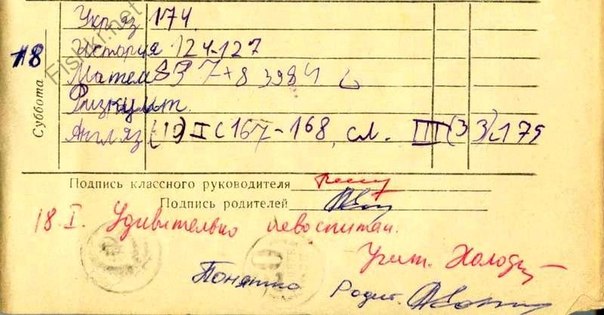 Укр яз 174
18 История. 124-127
Суббота
Матем 837+8 3984
Физкульт.
Англ яз (19) I с 167-168, сл. III (33) с 175
Подпись классного руководителя
Подпись родителей
18 I. Удивительно невоспитан.
Учит.
Понятно Родит.
Fishki.net